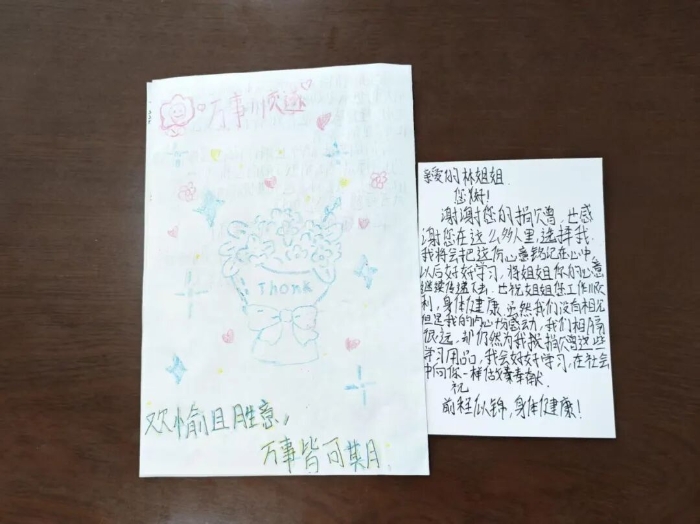 万事顺遂
Thank
欢愉且胜意,
万事皆可期
亲爱的林姐姐
您好!
谢谢您的捐赠,也感
谢您在这么多人里选择我.
我将会把这份心意铭记在心中,
以后好好学习,将姐姐你的心意
继续传递下去.也祝姐姐您工作顺
利,身体健康.虽然我们没有相见
但是我的内心很感动,我们相隔
很远,却仍然为我捐赠这些
学习用品,我会好好学习,在社会
中向你一样做奉献.
祝
前程似锦,身体健康!